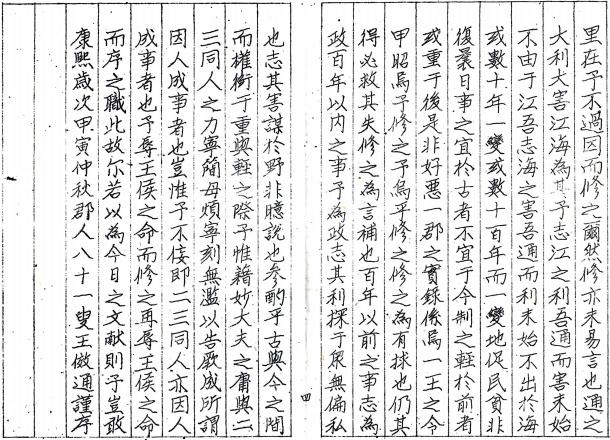 里在予不過因而修之爾然修亦未易言也通之
大利大害江海為其予志江之利吾通而害未始
不由于江吾志海之害吾通而利未始不出於海
或數十年一變或數十百年而一變地促民貧非
復曩日事之宜於古者不宜于今制之輕於前者
或重于後是非好惡一郡之實錄係焉一王之令
甲昭焉予修之予烏乎修之修之為有採也仍其
得必救其失修之為言補也百年以前之事志為
政百年以内之事予為政志其利探于衆無偏私
四
也志其害謀於野非臆說也參酌乎古與今之間
而權衡于重與輕之際予惟藉妙大夫之膚與二
三同人之力寧簡毋煩寧刻無濫以告厥成所謂
因人成事者也豈惟予不佞即二三同人亦因人
成事者也予辱王侯之命而修之再辱王侯之命
而序之職此故尔若以為今日之文献則予豈敢
康熙歲次甲寅仲秋郡人八十一叟王俶通謹序